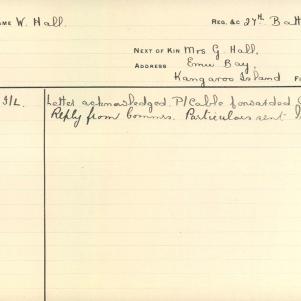 AME W. Hall. REG. &C 27th. Batt
NEXT OF KIN Mrs G. Hall,
ADDRESS Emu Bay,
Kangaroo Island
I/L. Letter acknowledged. P/Cable forwarded
Reply from Commrs. Particulars sent